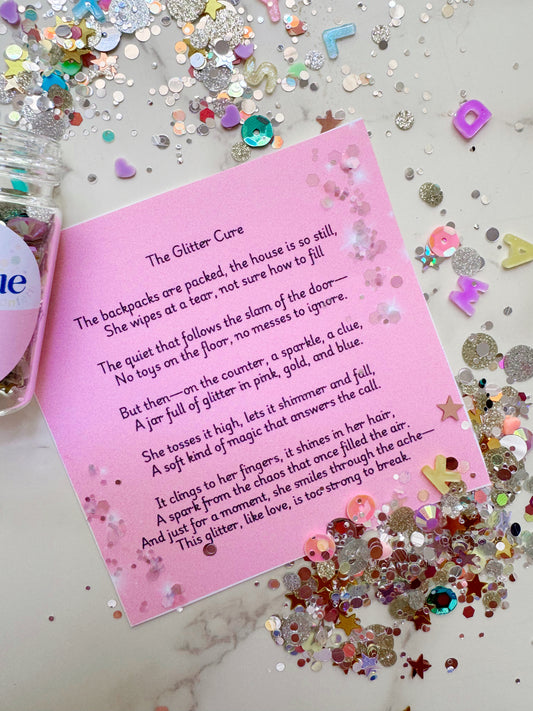 The Glitter Cure
The backpacks are packed, the house is so still,
She wipes at a tear, not sure how to fill
The quiet that follows the slam of the door—
No toys on the floor, no messes to ignore.
But then—on the counter, a sparkle, a clue,
A jar full of glitter in pink, gold, and blue.
She tosses it high, lets it shimmer and fall,
A soft kind of magic that answers the call.
It clings to her fingers, it shines in her hair,
A spark from the chaos that once filled the air.
And just for a moment, she smiles through the ache—
This glitter, like love, is too strong to break.
ue